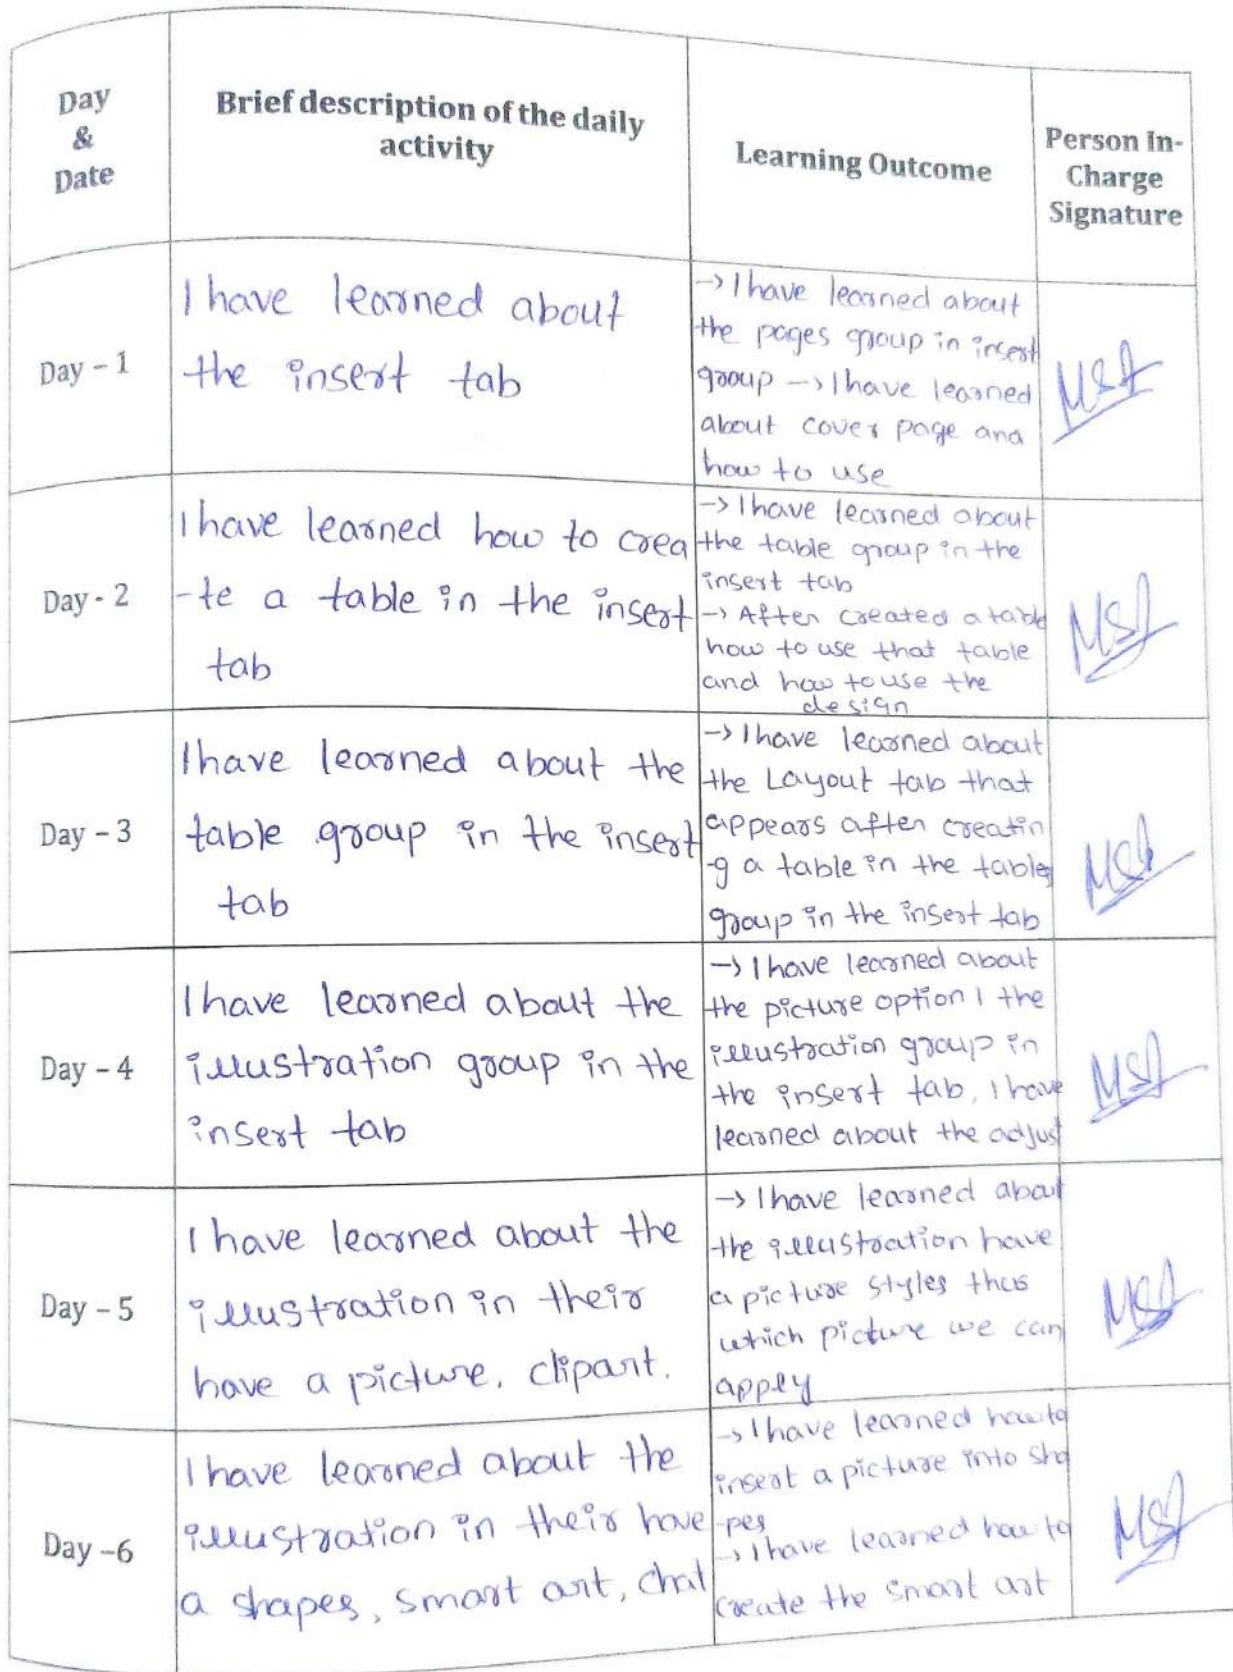 Day
&
Date
Brief description of the daily
activity
Learning Outcome
Person In-
Charge
Signature
Day - 1
I have learned about
the insert tab
-> I have learned about
the pages group in insert
group -> I have learned
about cover page and
how to use
Day - 2
I have learned how to crea
-te a table in the insert
tab
-> I have learned about
the table group in the
insert tab
-> After created a table
how to use that table
and how to use the
design
Day - 3
I have learned about the
table group in the insert
tab
-> I have learned about
the Layout tab that
appears after creatin
-g a table in the tables
group in the insert tab
Day - 4
I have learned about the
illustration group in the
insert tab
-> I have learned about
the picture option I the
illustration group in
the insert tab, I have
learned about the adjust
Day - 5
I have learned about the
illustration in their
have a picture, clipart.
-> I have learned about
the illustration have
a picture styles thus
which picture we can
apply
Day -6
I have learned about the
illustration in their have
a shapes, smart art, chat
-> I have learned how to
insert a picture into sha
-pes
-> I have learned how to
create the smart art